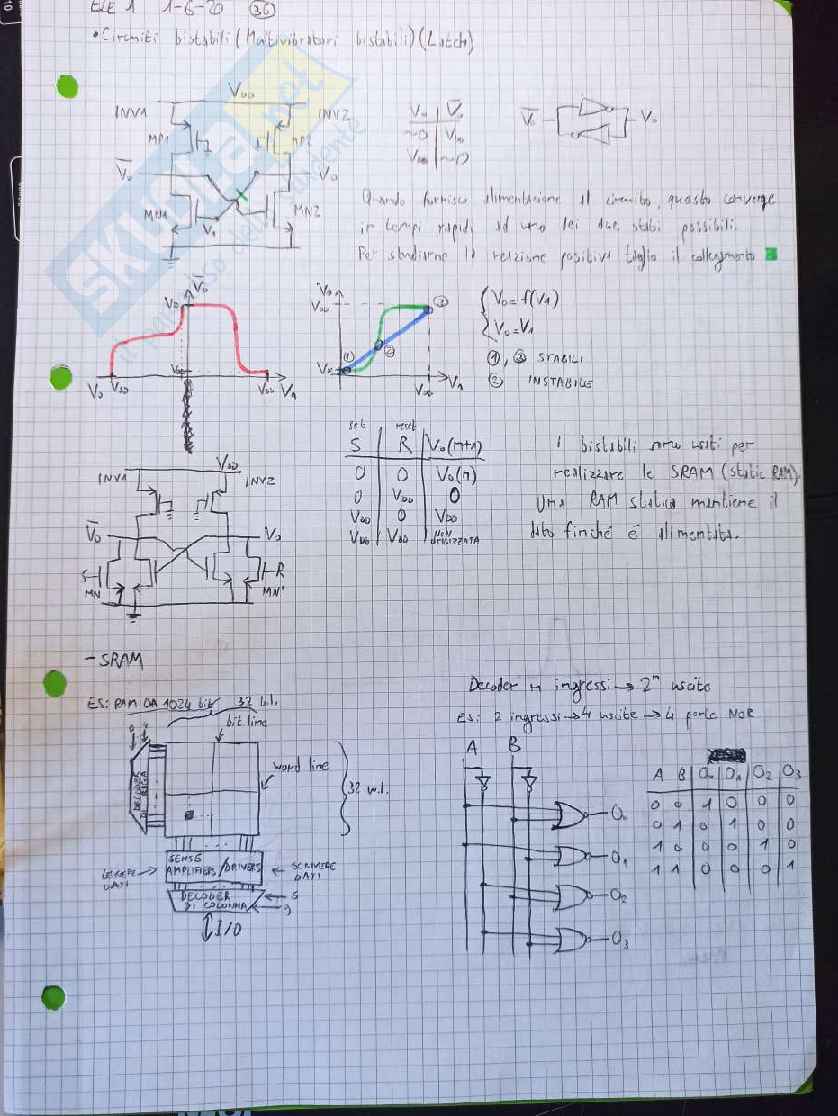 ELE 1 1-6-20 36
• Circuiti bistabili (Multivibratori bistabili) (Latch)
VDD
INV1 INV2
MP1 MP2
V̅o Vo
MN1 MN2
V1
Vo V̅o
~0 VDD
VDD ~0
V̅o Vo
Quando fornisco alimentazione il circuito, questo converge
in tempi rapidi ad uno dei due stati possibili.
Per studiarne la reazione positiva taglio il collegamento
V̅o
VDD
VDD
Vo VDD VDD V1
Vo
VDD
① ② ③
VDD V1
Vo = f(V1)
Vo = V1
①, ③ STABILI
② INSTABILE
set reset
S R Vo(n+1)
0 0 Vo(n)
0 VDD 0
VDD 0 VDD
VDD VDD NON UTILIZZATA
I bistabili sono usati per
realizzare le SRAM (static RAM).
Una RAM statica mantiene il
dato finché è alimentata.
VDD
INV1 INV2
V̅o Vo
S R
MN MN'
- SRAM
ES: RAM DA 1024 bit 32 b.l.
bit line
word line
32 w.l.
DECODER DI RIGA
SENSE
AMPLIFIERS / DRIVERS
LEGGERE DATI
SCRIVERE DATI
DECODER
DI COLONNA
I/O
Decoder n ingressi → 2ⁿ uscite
ES: 2 ingressi → 4 uscite → 4 porte NOR
A B
O0
O1
O2
O3
A B O0 O1 O2 O3
0 0 1 0 0 0
0 1 0 1 0 0
1 0 0 0 1 0
1 1 0 0 0 1
skuola.net